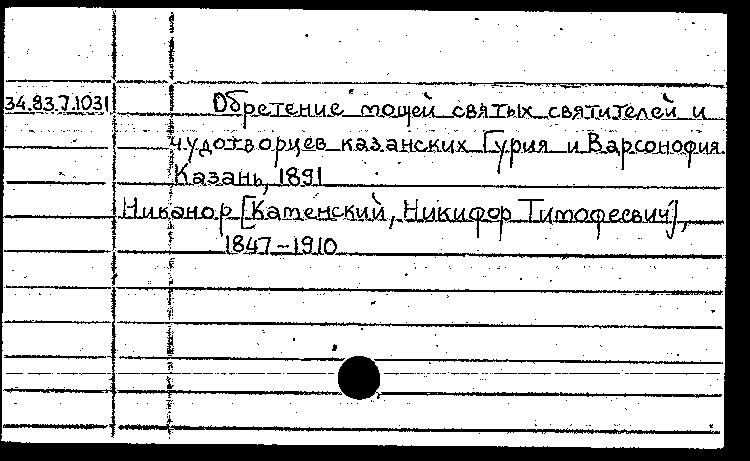 34.83.7.1031 Обретение мощей святых святителей и
чудотворцев казанских Гурия и Варсонофия
Казань, 1891
Никанор [Каменский, Никифор Тимофеевич],
1847-1910